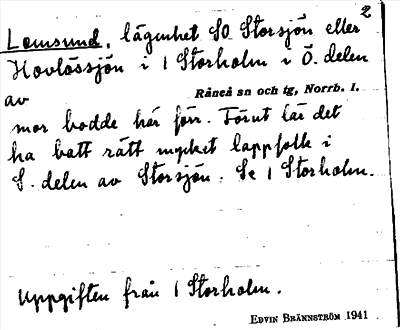 2
Lomsund, lägenhet SO Storsjön eller
Hovlössjön i 1 Storholm i Ö. delen
av
Råneå sn och tg, Norrb. l.
mor bodde här förr. Förut lär det
ha batt rätt mycket lappfolk i
S. delen av Storsjön. Se 1 Storholm.
Uppgiften från 1 Storholm.
EDVIN BRÄNNSTRÖM 1941